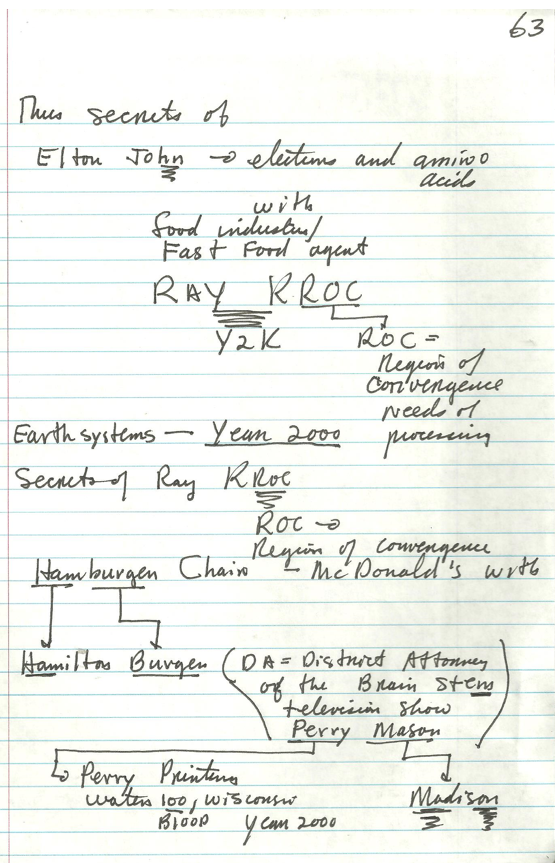 63
Thus secrets of
Elton John → elections and amino
acids
with
food industry/
Fast Food agent
RAY KROC
Y2K
ROC =
Region of
Convergence
needs of
processing
Earth systems — Year 2000
Secrets of Ray KROC
ROC →
Region of convergence
Hamburger Chain — McDonald's with
Hamilton Burger
(DA = District Attorney
of the Brain stem
television show
Perry Mason)
Perry Printers
Waters 100, Wisconsin
Blood Year 2000
Madison